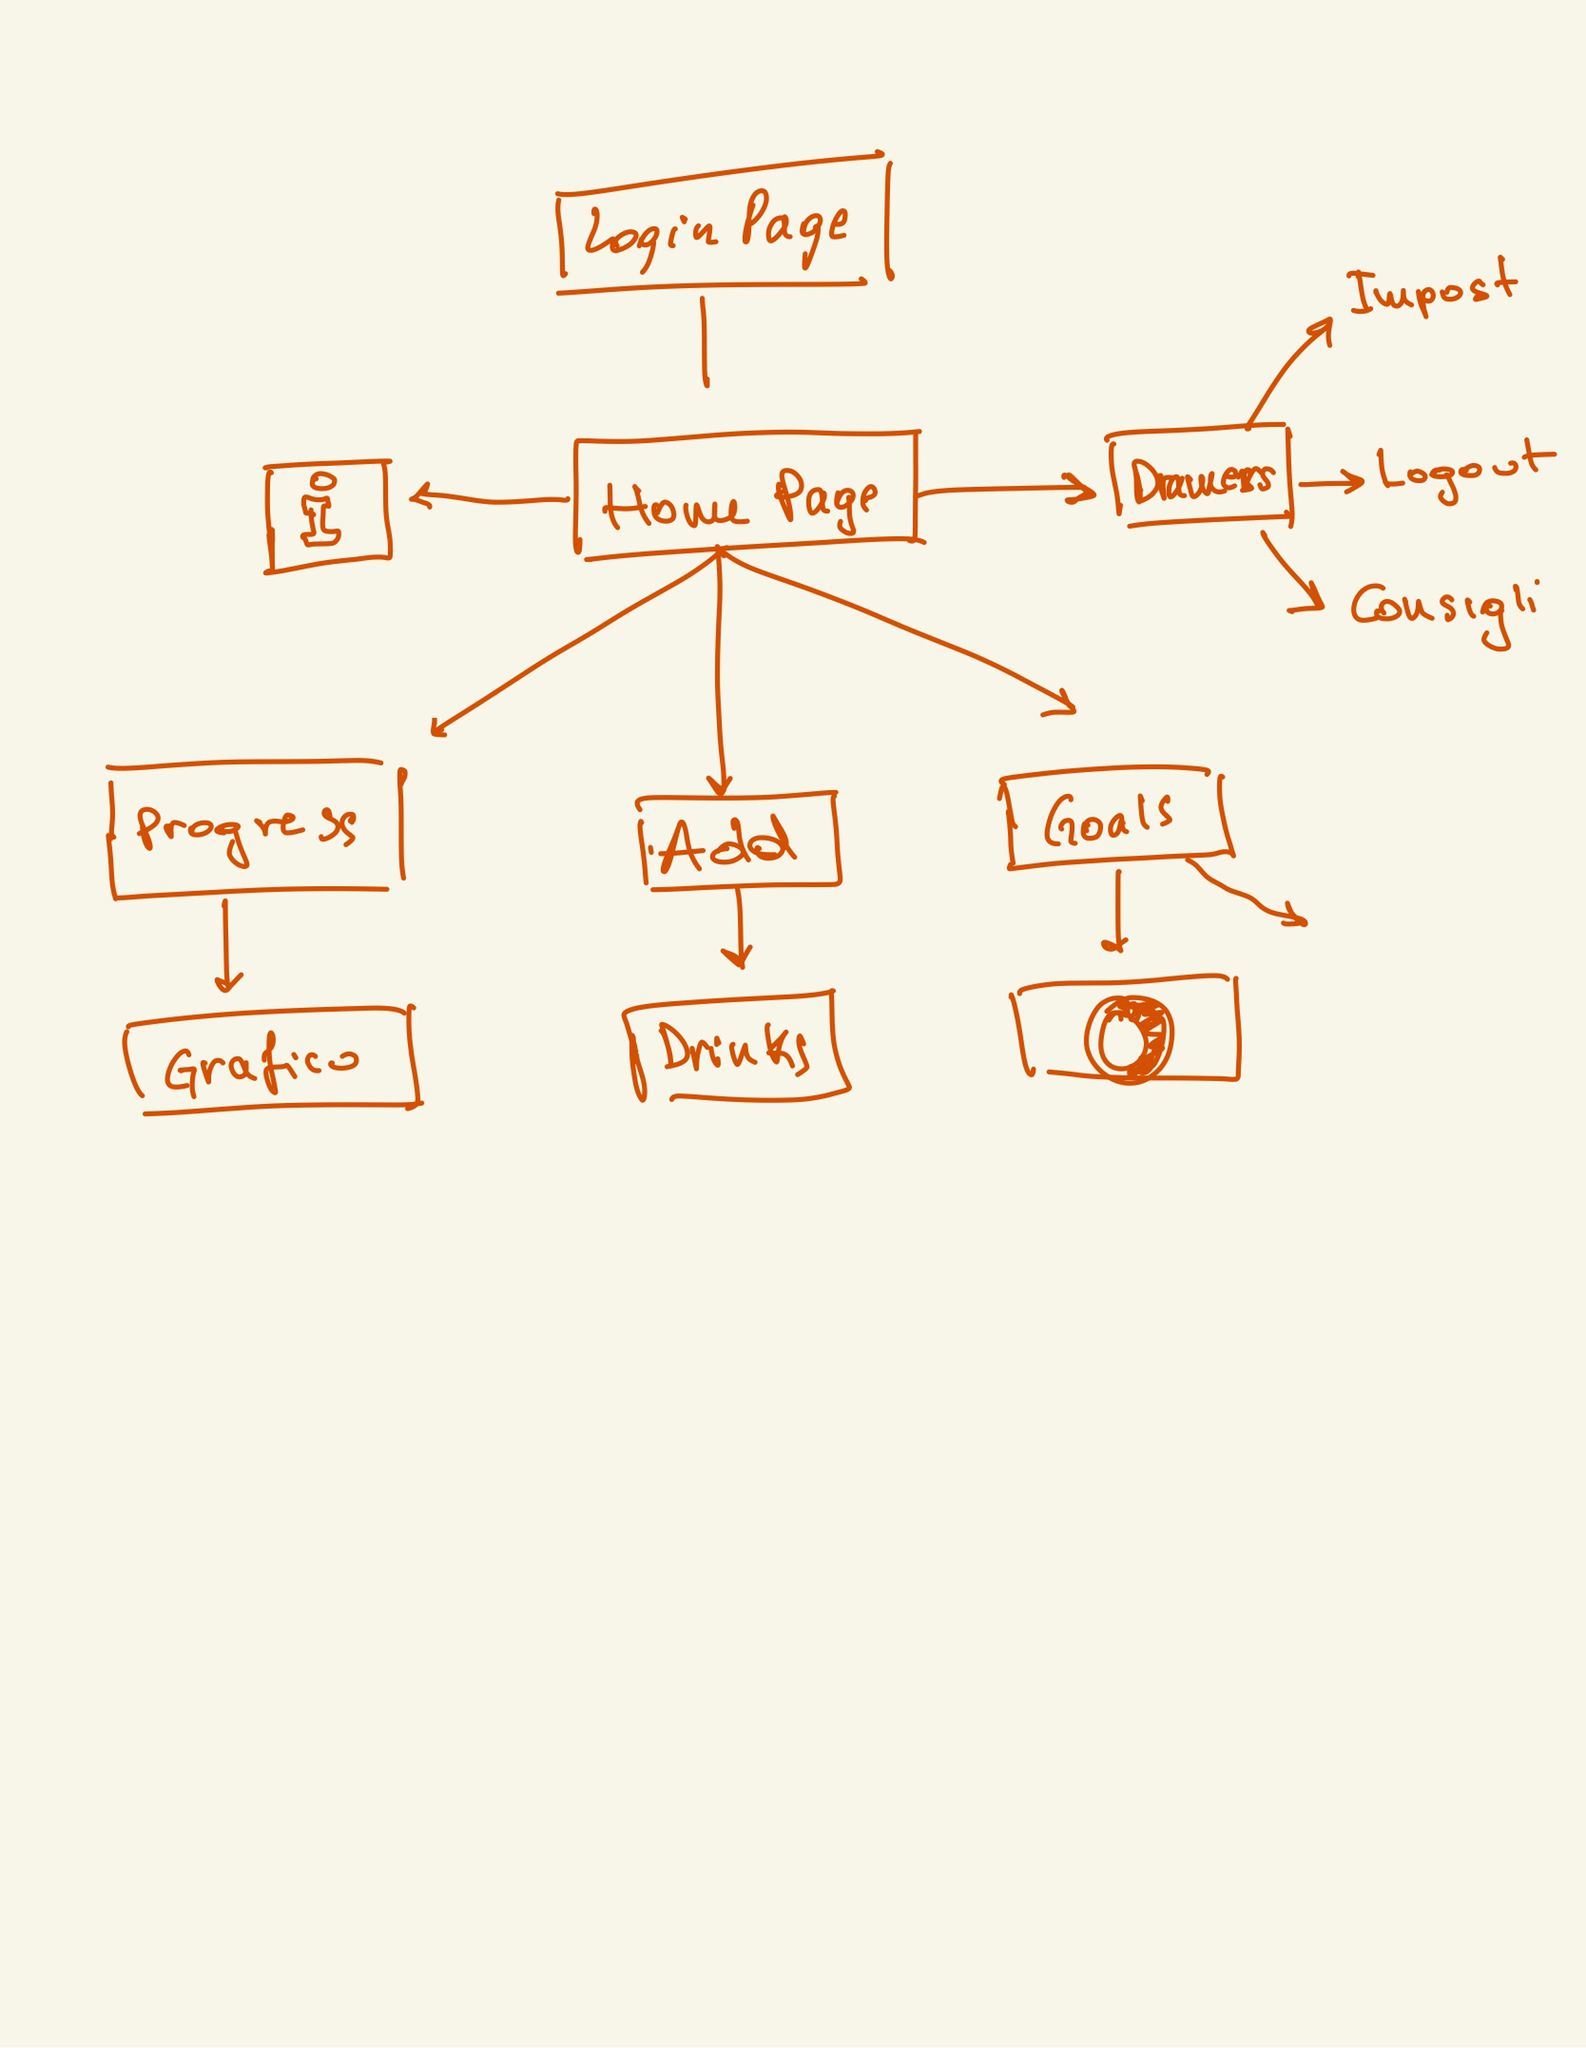 Login Page
Impost
Home Page
Drawers
Logout
i
Consigli
Progress
Add
Goals
Grafico
Drinks